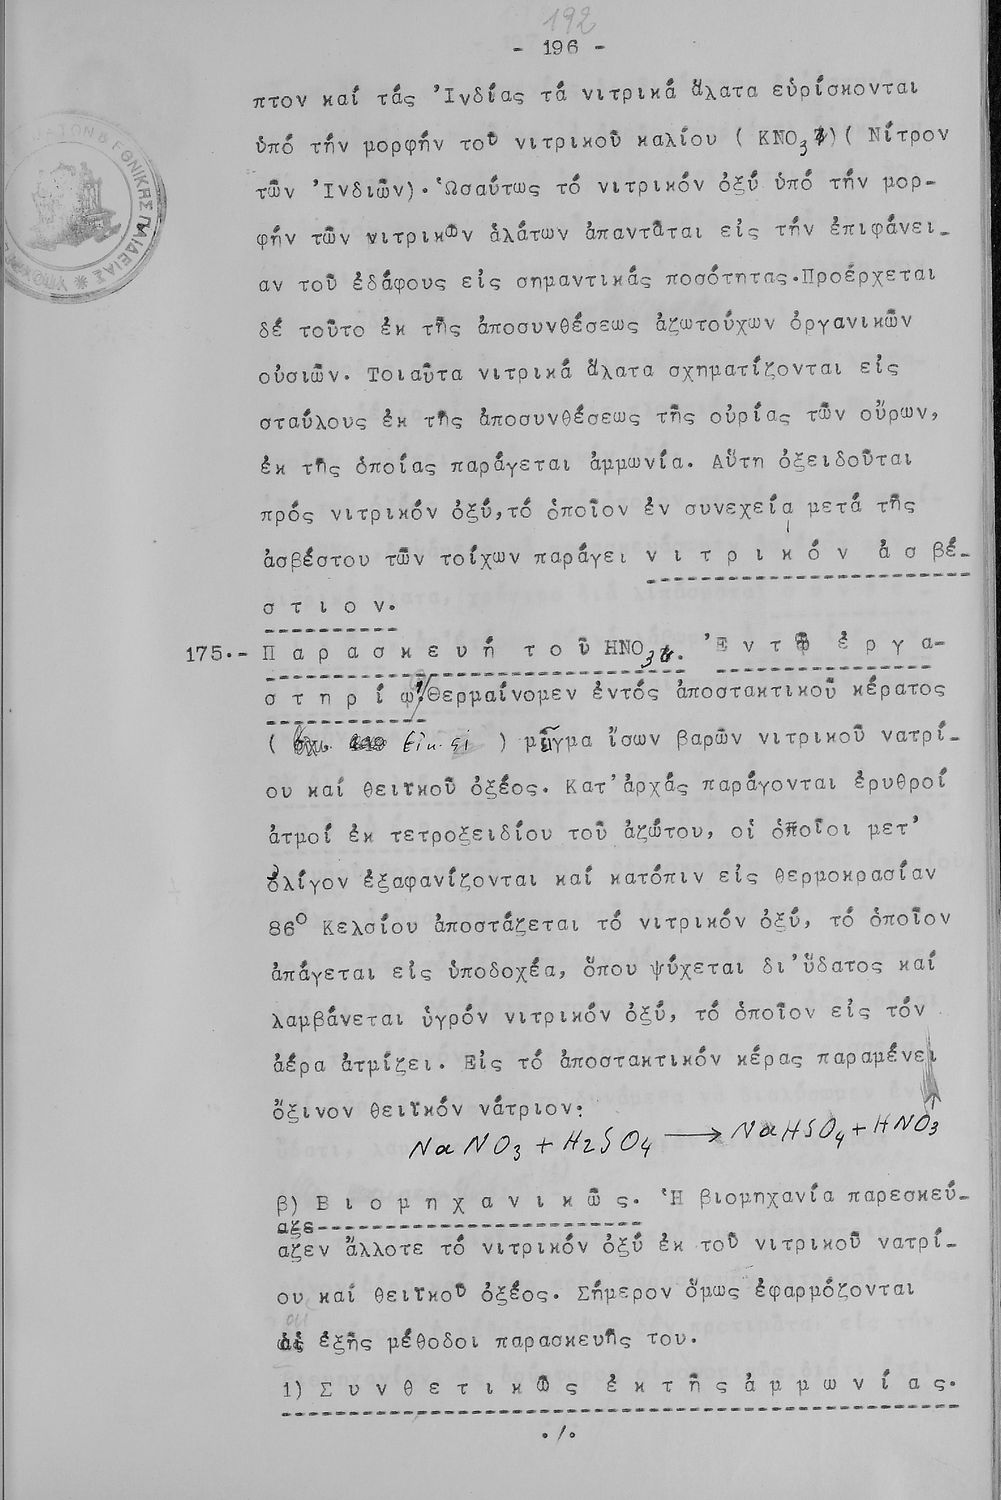 192
- 196 -
πτον καί τάς Ἰνδίας τά νιτρικά ἅλατα εὑρίσκονται
ὑπό τήν μορφήν τοῦ νιτρικοῦ καλίου ( KNO3 )( Νίτρον
τῶν Ἰνδιῶν). Ὡσαύτως τό νιτρικόν ὀξύ ὑπό τήν μορ-
φήν τῶν νιτρικῶν ἁλάτων ἀπαντᾶται εἰς τήν ἐπιφάνει-
αν τοῦ ἐδάφους εἰς σημαντικάς ποσότητας.Προέρχεται
δέ τοῦτο ἐκ τῆς ἀποσυνθέσεως ἀζωτούχων ὀργανικῶν
οὐσιῶν. Τοιαῦτα νιτρικά ἅλατα σχηματίζονται εἰς
σταύλους ἐκ τῆς ἀποσυνθέσεως τῆς οὐρίας τῶν οὔρων,
ἐκ τῆς ὁποίας παράγεται ἀμμωνία. Αὕτη ὀξειδοῦται
πρός νιτρικόν ὀξύ,τό ὁποῖον ἐν συνεχεία μετά τῆς
ἀσβέστου τῶν τοίχων παράγει ν ι τ ρ ι κ ό ν ἀ σ βέ-
σ τ ι ο ν.
175.- Π α ρ α σ κ ε υ ή τ ο ῦ HNO3. Ἐ ν τ ῷ ἐ ρ γ α-
σ τ η ρ ί ῳ. Θερμαίνομεν ἐντός ἀποστακτικοῦ κέρατος
( Εἰκ. 91 ) μῖγμα ἴσων βαρῶν νιτρικοῦ νατρί-
ου καί θειϊκοῦ ὀξέος. Κατ'ἀρχάς παράγονται ἐρυθροί
ἀτμοί ἐκ τετροξειδίου τοῦ ἀζώτου, οἱ ὁποῖοι μετ'
ὀλίγον ἐξαφανίζονται καί κατόπιν εἰς θερμοκρασίαν
86⁰ Κελσίου ἀποστάζεται τό νιτρικόν ὀξύ, τό ὁποῖον
ἀπάγεται εἰς ὑποδοχέα, ὅπου ψύχεται δι'ὕδατος καί
λαμβάνεται ὑγρόν νιτρικόν ὀξύ, τό ὁποῖον εἰς τόν
ἀέρα ἀτμίζει. Εἰς τό ἀποστακτικόν κέρας παραμένει
ὄξινον θειϊκόν νάτριον:
NaNO3 + H2SO4 → NaHSO4 + HNO3
β) Β ι ο μ η χ α ν ι κ ῶ ς. Ἡ βιομηχανία παρεσκεύ-
αζε
αζεν ἄλλοτε τό νιτρικόν ὀξύ ἐκ τοῦ νιτρικοῦ νατρί-
ου καί θειϊκοῦ ὀξέος. Σήμερον ὅμως ἐφαρμόζονται
αἱ ἑξῆς μέθοδοι παρασκευῆς του.
1) Σ υ ν θ ε τ ι κ ῶ ς ἐ κ τ ῆ ς ἀ μ μ ω ν ί α ς.
./.